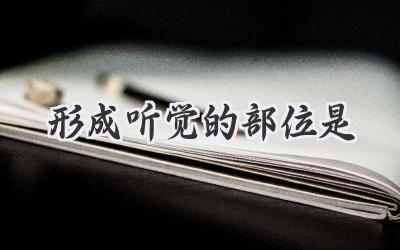 形成听觉的部位是